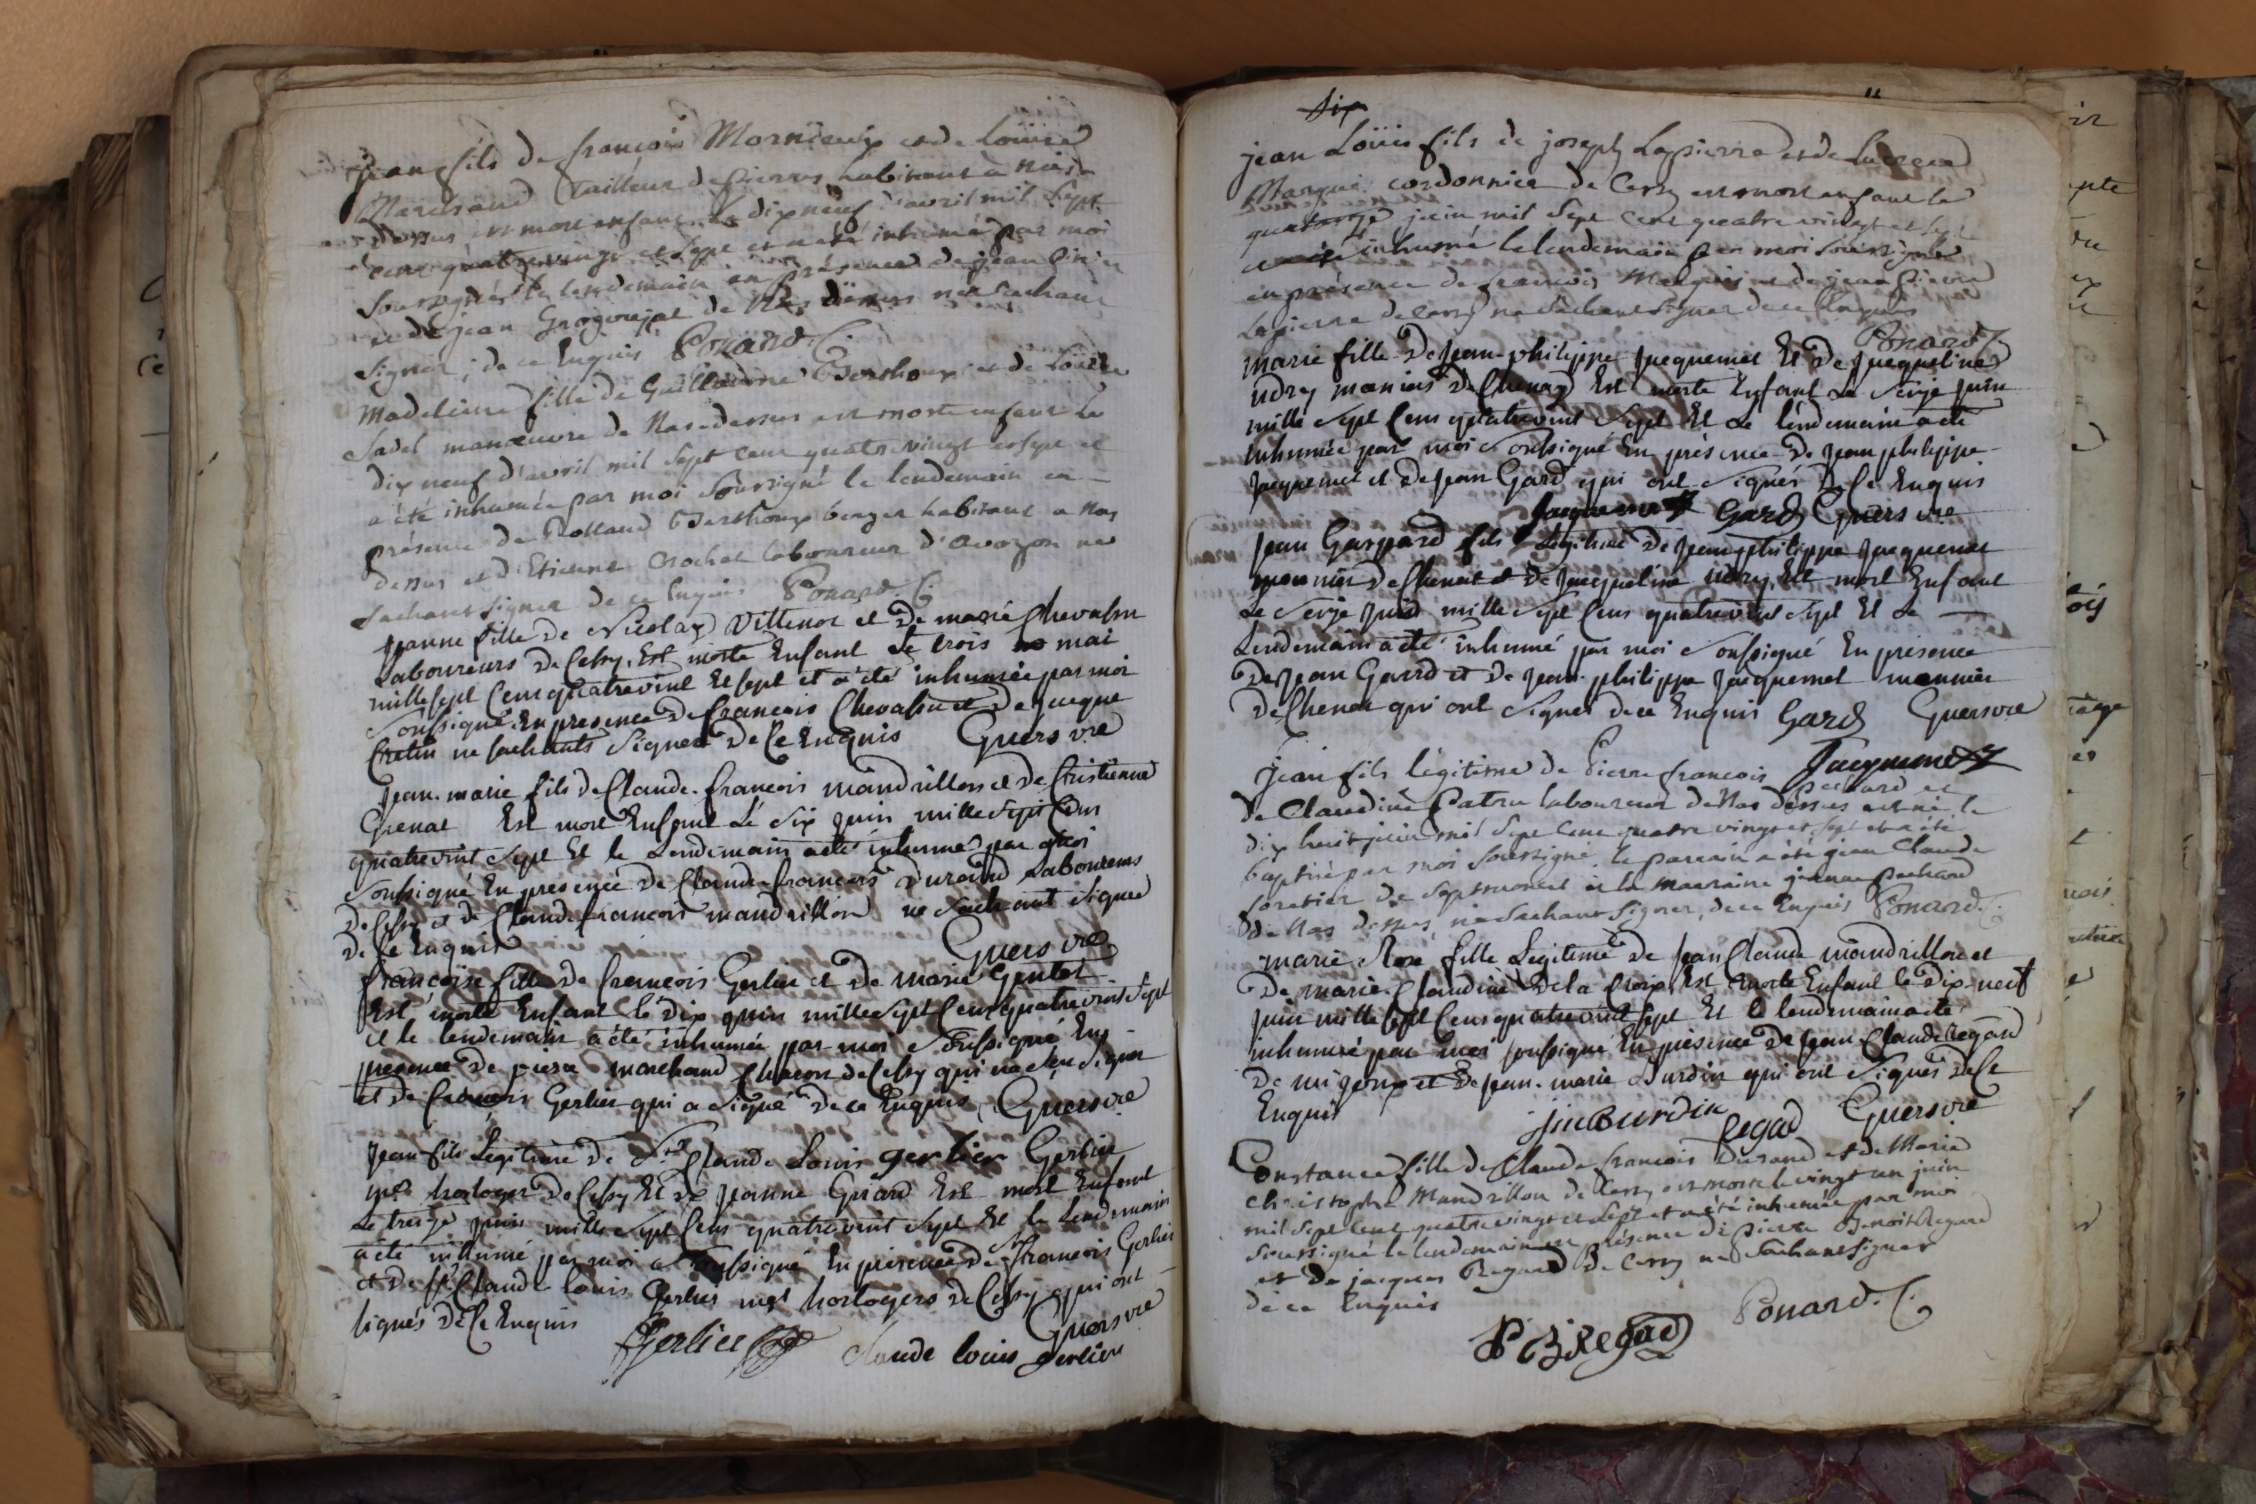 jean fils de françois Mornieux et de Loüise
Marchand tailleur de pierres habitant a Nas
dessus est mort enfant le dix neuf d'avril mil sept
cent quatre vingt et sept et a été inhumé par moi
soussigné le lendemain en présence de jean
et de jean Grosgurjat de Nas dessus ne sachant
signer, de ce Enquis Ponard C.
Madeleine fille de Guillaume Berthoux et de Loüise
Sadel manœuvre de Nas dessus est morte enfant le
dix neuf d'avril mil sept cent quatre vingt et sept et
a été inhumée par moi soussigné le lendemain en
présence de Rolland Berthoux berger habitant a Nas
dessus et d'Etienne Crochet laboureur d'avozon ne
sachant signer de ce Enquis Ponard. C.
jeanne fille de Nicolas Vittenet et De marie Chevassu
Laboureurs De Cessy, Est morte Enfant Le trois mai
mille sept Cens quatrevint Et sept et a été inhumée par moi
soussigné En presence De francois Chevassu et De jacque
Cretin ne sachants Signer De Ce Enquis Guers vre
jean-marie fils De Claude-francois mandrillon et De Cristienne
Grenat Est mort Enfant Le Six juin mille sept Cens
quatrevint sept Et le Lendemain a été inhumé par moi
soussigné En presence De Claude francois Durand Laboureurs
De Cessy et De Claude francois mandrillon ne sachant signer
De Ce Enquis Guers vre
francoise fille De francois Gerlier et De marie Gentet
Est morte Enfant le Dix juin mille sept Cens quatrevint sept
et le lendemain a été inhumée par moi soussigné En
presence De piere marchand Charon De Cessy qui n'a sçu signer
et De francois Gerlier qui a signé De ce Enquis Guers vre
jean fils Legitime De Sr Claude Louis gerlier Gerlier
horloger De Cessy Et De jeanne Girard Est mort Enfant
Le treize juin mille sept Cens quatrevint sept Et le Lendemain
a été inhumé par moi soussigné En présence De Sr francois Gerlier
et De Sr Claude louis Gerlier horlogers De Cessy qui ont
signés De Ce Enquis Guers vre
Gerlier claude louis gerlier
six
jean Loüis fils de joseph Lapierre et de Lucrece
Marquis cordonnier de Cessy est mort enfant le
quatorze juin mil sept cent quatre vingt et sept
inhumé le lendemain par moi soussigné
en présence de francois Marquis et de jean pierre
Lapierre de Cessy ne sachant signer de ce Enquis
Ponard C.
marie fille De jean-philippe jacquemet Et De jacqueline
udry monier De Chenaz Est morte Enfant Le seize juin
mille sept Cens quatrevint sept Et Le lendemain a été
inhumée par moi soussigné En présence De jean philippe
jacquemet et De jean Gard qui ont signés De Ce Enquis
jacquemet Gard Guers vre
jean Gaspard fils Legitime De jean philippe jacquemet
mounier De Chenat et De jacqueline udry, Est mort Enfant
Le seize juin mille sept Cens quatrevint sept Et Le
Lendemain a été inhumé par moi soussigné En présence
De jean Gard et De jean-philippe jacquemet mounier
De Chenat qui ont signés de ce Enquis Gard Guersvre
Jacqumet
jean fils légitime de Pierre françois Pachard et
de Claudine Patru laboureur de Nas dessus est né le
dix huit juin mil sept cent quatre vingt et sept et a été
baptisé par moi soussigné, le parrain a été jean Claude
foretier de Septmoncel et la marraine jeanne pachard
de Nas dessus, ne sachant signer, de ce Enquis Ponard C.
marie Rose fille Légitime De Jean Claude mandrillon et
De marie Claudine De la Croix, Est morte Enfant le Dix-neuf
juin mille sept Cens quatrevint sept Et le lendemain a été
inhumé par moi soussigné En présence De jean Claude Regad
De mijoux et De jean-marie Burdin qui ont signés De Ce
Enquis jm Burdin Regad Guersvre
Constance fille de Claude françois Durand et de Marie
christophe Mandrillon de Cessy est morte le vingt un juin
mil sept cent quatre vingt et sept et a été inhumée par moi
soussigné le lendemain en présence de pierre Benoit Regard
et de jacques Regard de Cessy ne sachant signer
de ce Enquis Ponard. C.
P B Regad